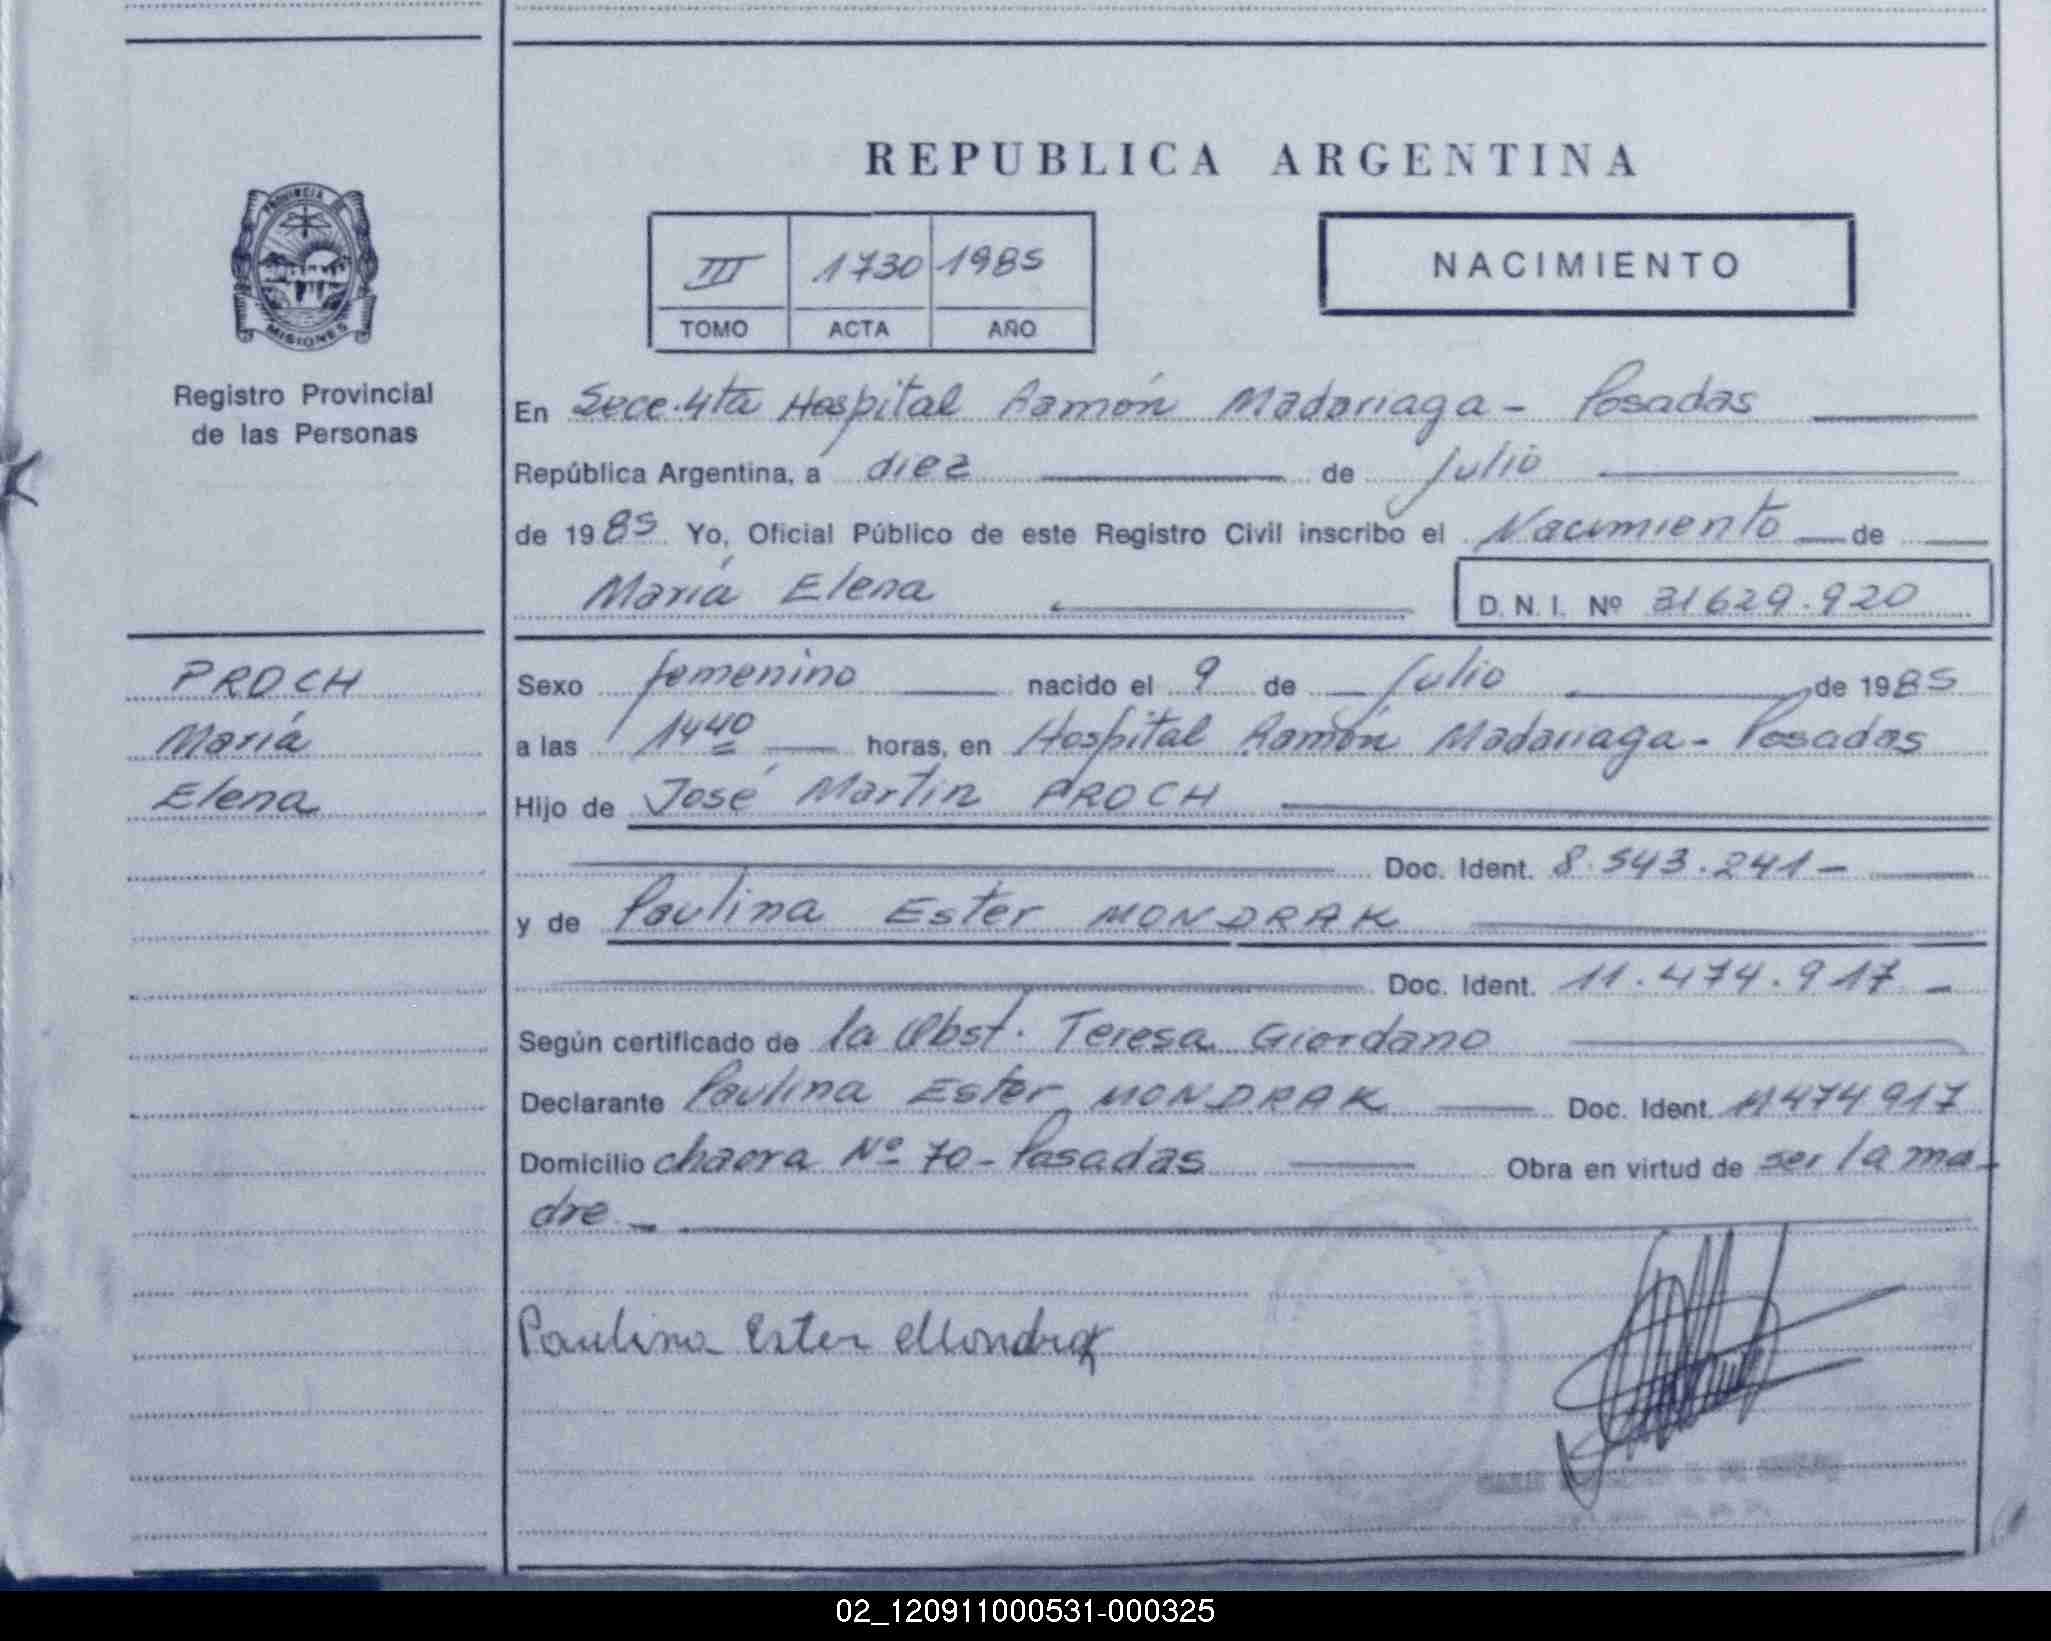 REPUBLICA ARGENTINA
PROVINCIA
MISIONES
Registro Provincial
de las Personas
III 1730 1985
TOMO ACTA AÑO
NACIMIENTO
En Secc. 4ta Hospital Ramón Madariaga - Posadas
República Argentina, a diez de julio
de 1985 Yo, Oficial Público de este Registro Civil inscribo el Nacimiento de
María Elena D. N. I. Nº 31629.920
PROCH
María
Elena
Sexo femenino nacido el 9 de julio de 1985
a las 1440 horas, en Hospital Ramón Madariaga - Posadas
Hijo de José Martín PROCH
Doc. Ident. 8.543.241-
y de Paulina Ester MONDRAK
Doc. Ident. 11.474.917 -
Según certificado de la Obst. Teresa Giordano
Declarante Paulina Ester MONDRAK Doc. Ident. 11474917
Domicilio chacra Nº 70 - Posadas Obra en virtud de ser la ma-
dre -
Paulina Ester Mondrak
02_120911000531-000325